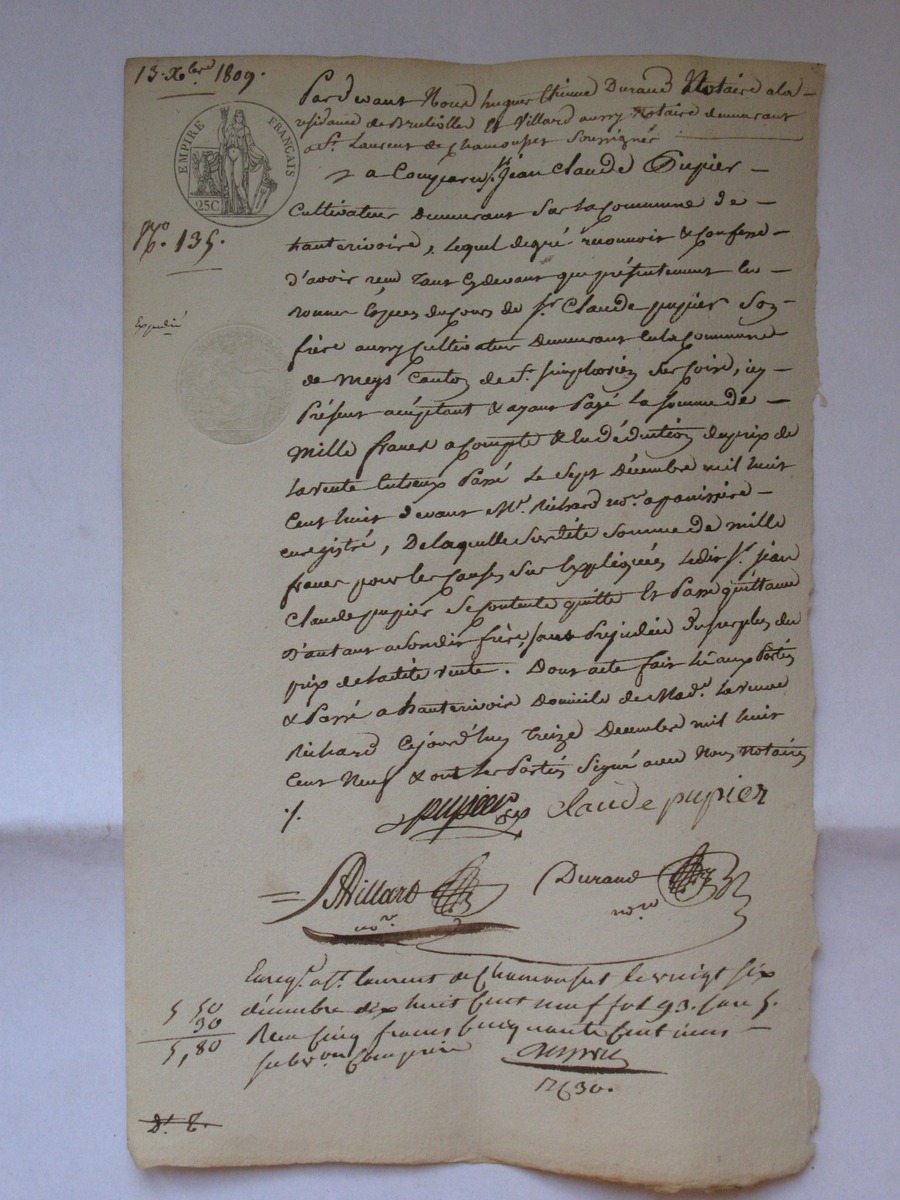 13. Xbre 1809.
EMPIRE FRANÇAIS
25C
Pardevant Nous hugues Etienne Durand Notaire a la
residance de Brulliolles & Villard aussy Notaire demeurant
a St. Laurent de Chamousset Soussignés
a Comparu Sr. jean Claude Pupier
No. 135.
Cultivateur Demeurant Sur la Commune de
hauterivoire, Lequel de gré reconnoit & Confesse
d'avoir reçu tant Cydevant que présentement en
bonnes Espèces du Cours de Sr. Claude pupier Son
Expedié
frère aussy Cultivateur Demeurant en la Commune
de Meys Canton de St. simphorien Sur Coise, icy
Présent acceptant & ayant Payé La Somme de
Mille francs a Compte & En déduction du prix de
La vente Entreux Passé Le Sept Décembre mil huit
Cent huit devant Me. Richard nore. a panissière
enregistré, De laquelle Susdite Somme de mille
francs pour les Causes Sus Expliquées Ledit Sr. jean
Claude pupier Se Contente quitte Et Passe quittance
D'autant a Sondit frère, Sans Prejudice Du Surplus du
prix de Ladite vente. Dont acte fait Lu aux Parties
& Passé a hauterivoir Domicile de Made. La veuve
Richard Cejourd'huy treize Decembre mil huit
Cent Neuf & ont Les Parties Signé avec Nous Notaires
pupier claude pupier
Villard Durand
nore. nore.
Enregé. a St. laurent de Chamousset le vingt six
décembre dix huit Cent neuf fol 93. Case 5.
5 50
30
5,80
Reçu Cinq francs Cinquante Centimes
Subvon Comprise